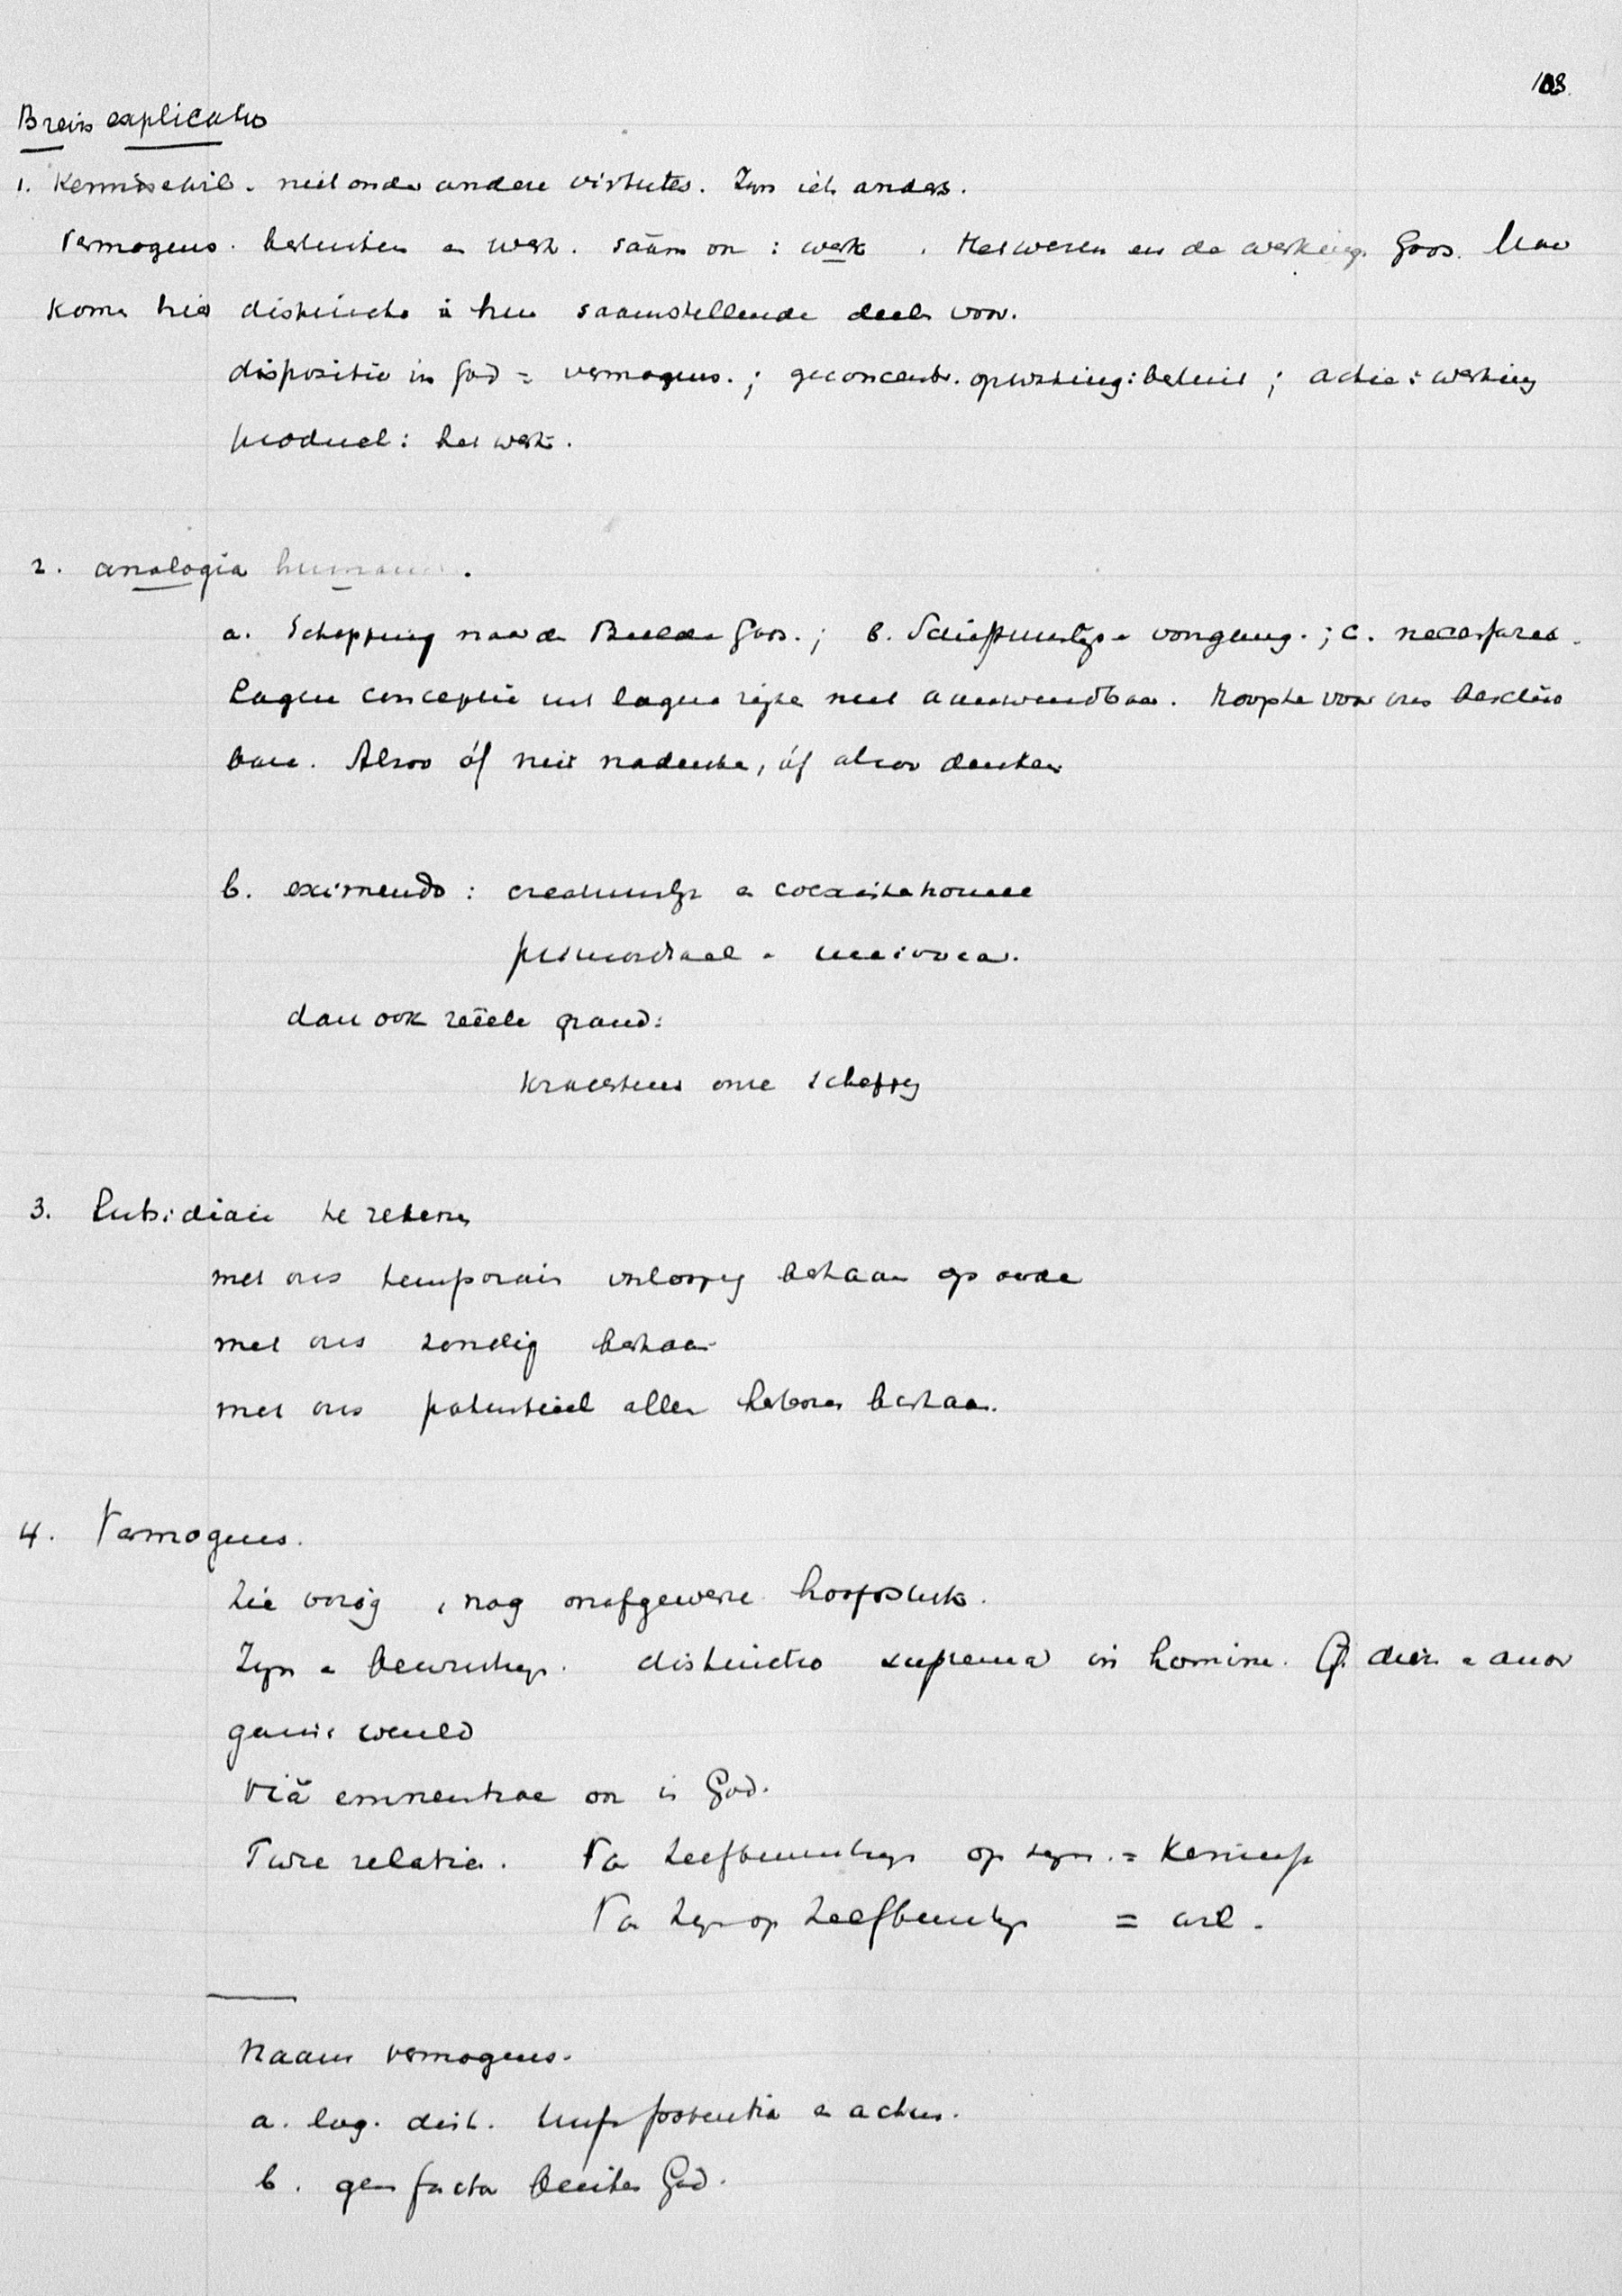 108.
Brevis explicatio
1. Kennis & wil. niet onder andere virtutes. Zijn iets anders.
Vermogens. besluiten en werk. saam on : werk. Het wezen en de werking Gods. Maar
komen hier distincte in hun saamstellende deelen voor.
dispositie in God = vermogens. ; geconcentr. opwerking : besluit ; actie : werking
product : het werk.
2. analogia humana.
a. Schepping naar den Beelde Gods. ; b. Schriftuurlijke voorgang. ; c. necessitas.
Lagere conceptie uit lagere rijke niet aanwendbaar. Hoogste voor ons beschik
baar. Alzoo óf niet nadenken, óf alzoo denken
b. eximendo : creatuurlijk en
primordiaal en univoca.
dan ook reëele grond :
krachtens onze schepping
3. Subsidiair te rekenen
met ons temporair voorloopig bestaan op aarde
met ons zondig bestaan
met ons potentieel aller bestaan.
4. Vermogens.
Zie vorig, nog onafgewerkt hoofdstuk.
Zijn en bewustzijn. distinctio suprema in homine. dier en anor
ganis. wereld
Viâ eminentiae ook in God.
Twee relaties. Van zelfbewustzijn op zijn = Kennis
Van zijn op zelfbewustzijn = wil.
Naam vermogens.
a. log. dist. tusschen potentia en actus.
b. geen facta buiten God.